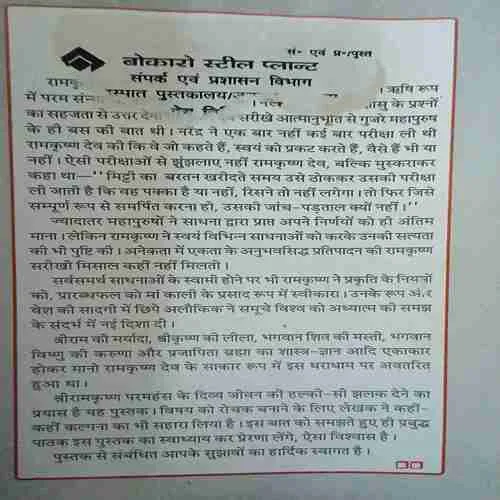 सं॰ एवं प्र॰/पुस्त
बोकारो स्टील प्लान्ट
संपर्क एवं प्रशासन विभाग
रामकृ
स्पात पुस्तकालय/ज
। ऋषि रूप
में परम सं
सु के प्रश्नों
का सहजता से उत्तर देना
सरीखे आत्मानुभूति से गुजरे महापुरुष
के ही बस की बात थी। नरेंद्र ने एक बार नहीं कई बार परीक्षा ली थी
रामकृष्ण देव की कि वे जो कहते हैं, स्वयं को प्रकट करते हैं, वैसे हैं भी या
नहीं। ऐसी परीक्षाओं से झुंझलाए नहीं रामकृष्ण देव, बल्कि मुस्कराकर
कहा था—''मिट्टी का बरतन खरीदते समय उसे ठोककर उसकी परीक्षा
ली जाती है कि वह पक्का है या नहीं, रिसने तो नहीं लगेगा। तो फिर जिसे
सम्पूर्ण रूप से समर्पित करना हो, उसकी जांच-पड़ताल क्यों नहीं।''
ज्यादातर महापुरुषों ने साधना द्वारा प्राप्त अपने निर्णयों को ही अंतिम
माना। लेकिन रामकृष्ण ने स्वयं विभिन्न साधनाओं को करके उनकी सत्यता
की भी पुष्टि की। अनेकता में एकता के अनुभवसिद्ध प्रतिपादन की रामकृष्ण
सरीखी मिसाल कहीं नहीं मिलती।
सर्वसमर्थ साधनाओं के स्वामी होने पर भी रामकृष्ण ने प्रकृति के नियमों
को, प्रारब्धफल को मां काली के प्रसाद रूप में स्वीकारा। उनके रूप और
वेश की सादगी में छिपे अलौकिक ने समूचे विश्व को अध्यात्म को समझ
के संदर्भ में नई दिशा दी।
श्रीराम की मर्यादा, श्रीकृष्ण की लीला, भगवान शिव की मस्ती, भगवान
विष्णु की करुणा और प्रजापिता ब्रह्मा का शास्त्र-ज्ञान आदि एकाकार
होकर मानो रामकृष्ण देव के साकार रूप में इस धराधाम पर अवतरित
हुआ था।
श्रीरामकृष्ण परमहंस के दिव्य जीवन की हल्की-सी झलक देने का
प्रयास है यह पुस्तक। विषय को रोचक बनाने के लिए लेखक ने कहीं-
कहीं कल्पना का भी सहारा लिया है। इस बात को समझते हुए ही प्रबुद्ध
पाठक इस पुस्तक का स्वाध्याय कर प्रेरणा लेंगे, ऐसा विश्वास है।
पुस्तक से संबंधित आपके सुझावों का हार्दिक स्वागत है।